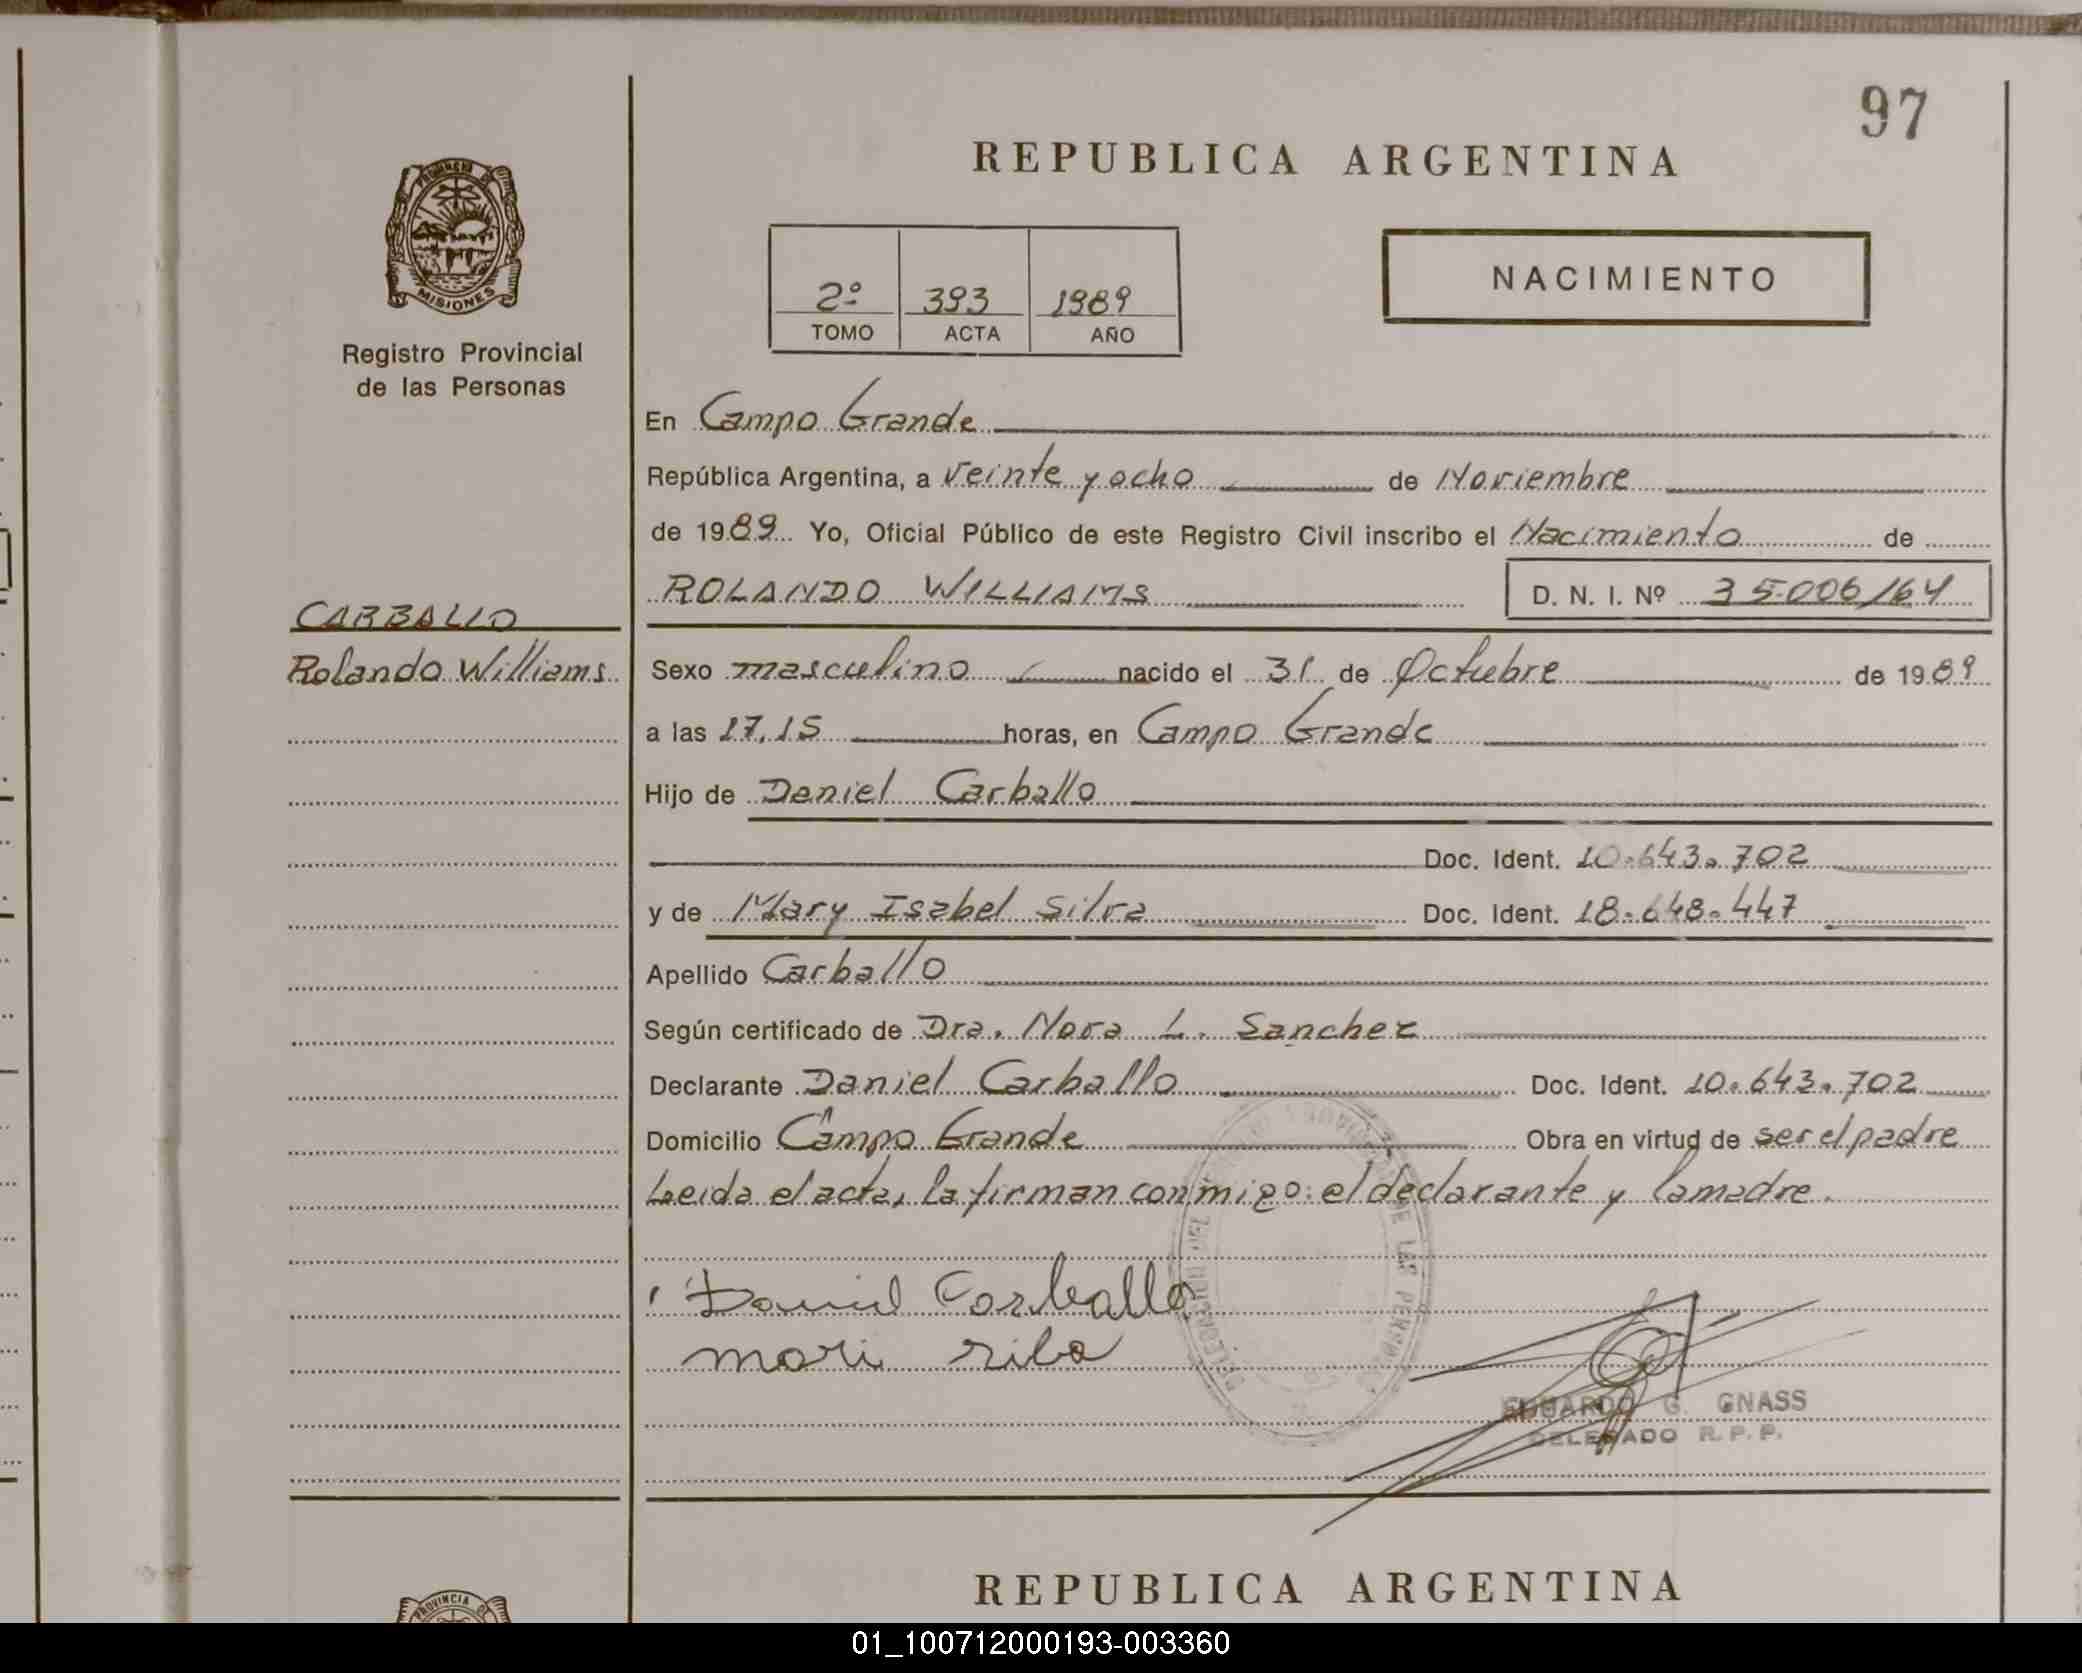 97
REPUBLICA ARGENTINA
PROVINCIA DE
MISIONES
Registro Provincial
de las Personas
2º 393 1989
TOMO ACTA AÑO
NACIMIENTO
En Campo Grande
República Argentina, a veinte y ocho de Noviembre
de 1989 Yo, Oficial Público de este Registro Civil inscribo el Nacimiento de
ROLANDO WILLIAMS D. N. I. Nº 35006164
CARBALLO
Rolando Williams
Sexo masculino nacido el 31 de Octubre de 1989
a las 17,15 horas, en Campo Grande
Hijo de Daniel Carballo
Doc. Ident. 10.643.702
y de Mary Isabel Silva Doc. Ident. 18.648.447
Apellido Carballo
Según certificado de Dra. Nora L. Sanchez
Declarante Daniel Carballo Doc. Ident. 10.643.702
Domicilio Campo Grande Obra en virtud de ser el padre
Leida el acta, la firman conmigo: el declarante y la madre.
Daniel Carballo
mari silva
EDUARDO G. GNASS
DELEGADO R.P.P.
REPUBLICA ARGENTINA
PROVINCIA DE
01_100712000193-003360